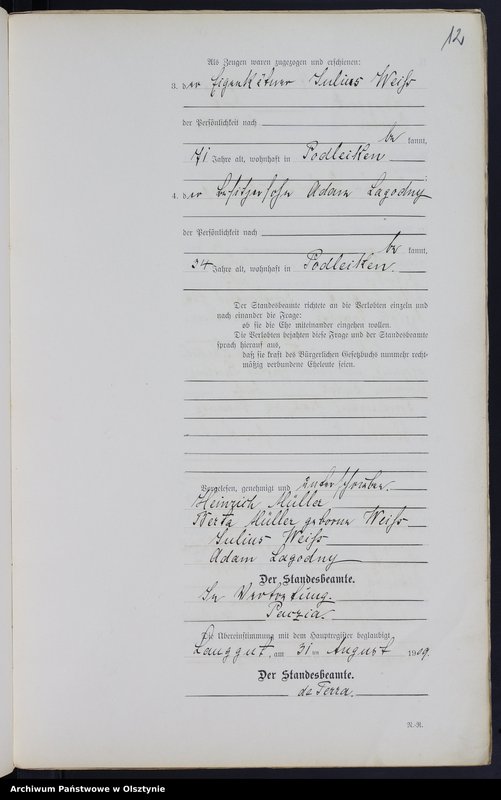 12
Als Zeugen waren zugezogen und erschienen:
3. der Eigenkätner Julius Weiß
der Persönlichkeit nach
be kannt,
71 Jahre alt, wohnhaft in Podleiken
4. der Besitzersohn Adam Lagodny
der Persönlichkeit nach
be kannt,
34 Jahre alt, wohnhaft in Podleiken.
Der Standesbeamte richtete an die Verlobten einzeln und
nach einander die Frage:
ob sie die Ehe miteinander eingehen wollen.
Die Verlobten bejahten diese Frage und der Standesbeamte
sprach hierauf aus,
daß sie kraft des Bürgerlichen Gesetzbuchs nunmehr recht-
mäßig verbundene Eheleute seien.
Vorgelesen, genehmigt und unterschrieben.
Heinrich Müller
Berta Müller geborne Weiß
Julius Weiß
Adam Lagodny
Der Standesbeamte.
In Vertretung.
Die Übereinstimmung mit dem Hauptregister beglaubigt
Langgut, am 31 ten August 1909.
Der Standesbeamte.
de Terra.
N.-R.
Archiwum Państwowe w Olsztynie